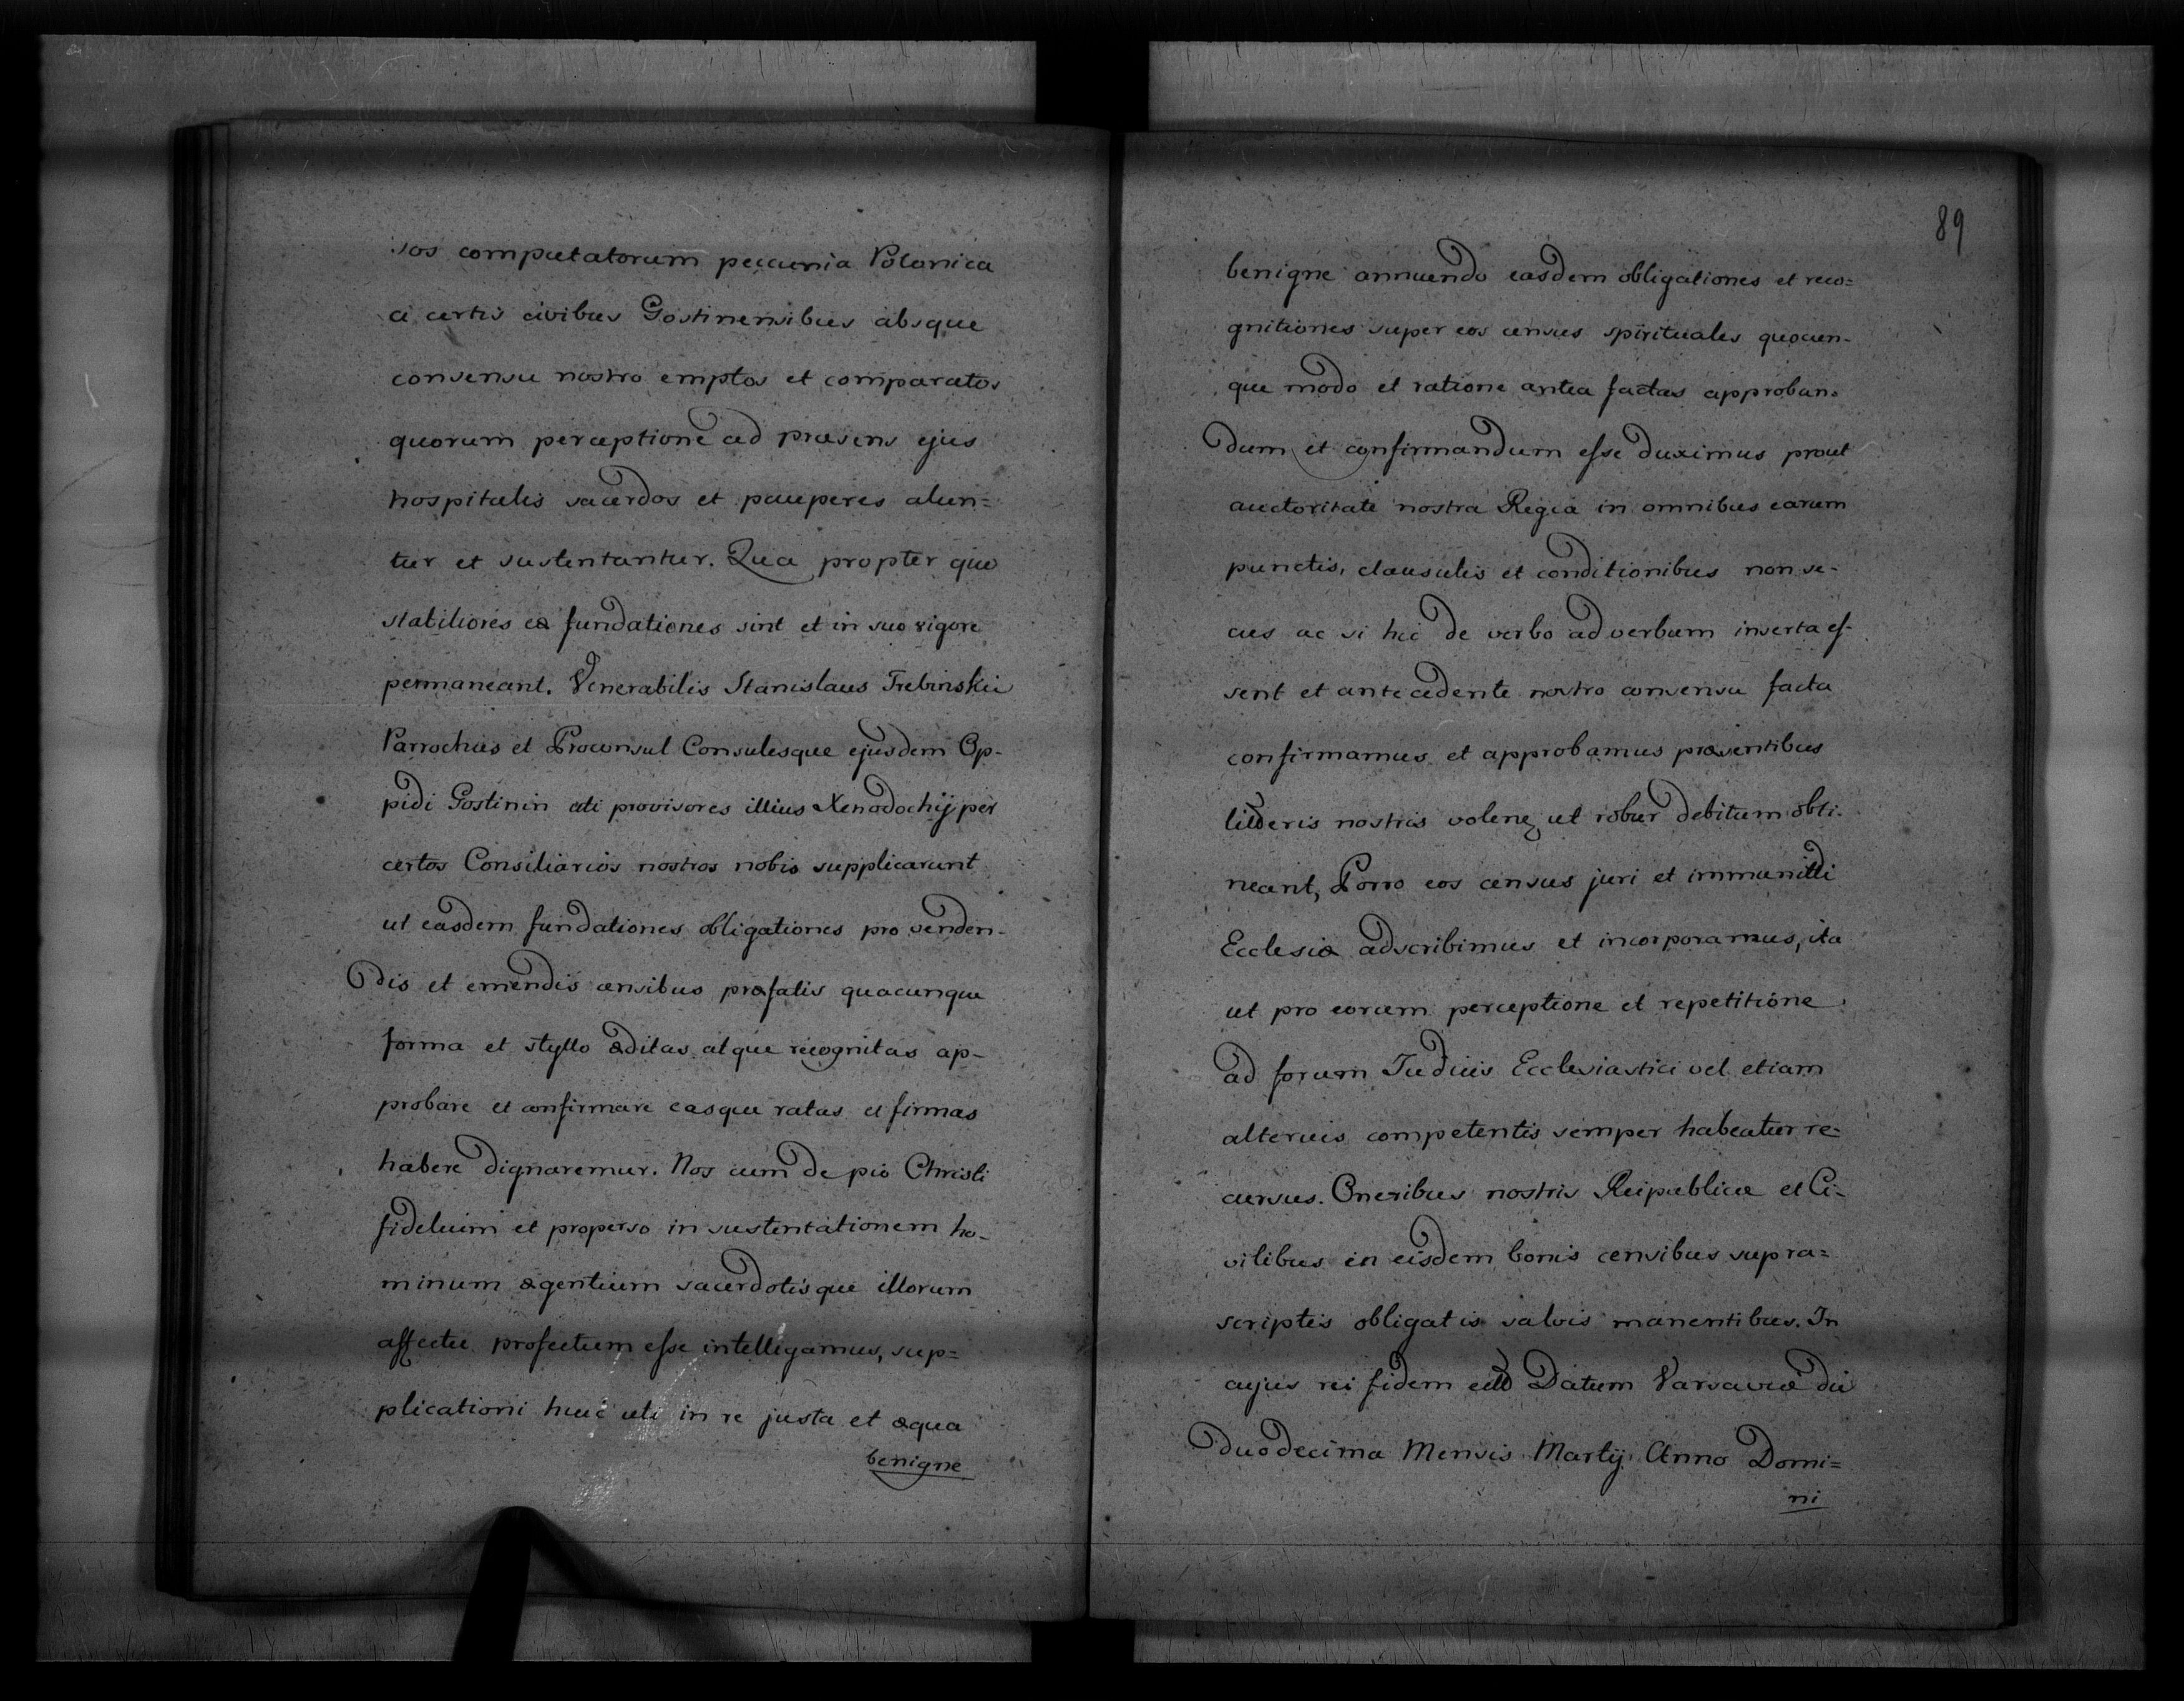 sos computatorum peccunia Polonica
a certis civibus Gostinensibus absque
consensu nostro emptos et comparatos
quorum perceptione ad præsens ejus
hospitalis sacerdos et pauperes alun=
tur et sustentantur. Qua propter quo
stabiliores eæ fundationes sint et in suo vigore
permaneant. Venerabilis Stanislaus Trebinskii
Parrochus et Proconsul Consulesque ejusdem Op-
pidi Gostinin uti provisores illius Xenodochij per
certos Consiliarios nostros nobis supplicarunt
ut easdem fundationes obligationes pro venden-
dis et emendis censibus præfatis quacunque
forma et styllo æditas atque recognitas ap-
probare et confirmare easque ratas et firmas
habere dignaremur. Nos cum de pio Christi
fidelium et properso in sustentationem ho-
minum ægentium sacerdotisque illorum
affectu profectum esse intelligamus, sup=
plicationi huic uti in re justa et æqua
benigne
89
benigne annuendo easdem obligationes et reco=
gnitiones super eos census spirituales quocun-
que modo et ratione antea factas approban=
dum et confirmandum esse duximus prout
auctoritate nostra Regia in omnibus earum
punctis, clausulis et conditionibus non se-
cus ac si hic de verbo ad verbum inserta es-
sent et antecedente nostro consensu facta
confirmamus et approbamus præsentibus
litteris nostris volen. ut robur debitum obti-
neant, Porro eos census juri et immunitti
Ecclesiæ adscribimus et incorporamus, ita
ut pro eorum perceptione et repetitione
ad forum Judicis Ecclesiastici vel etiam
alterius competentis semper habeatur re=
cursus. Oneribus nostris Reipublicæ et Ci=
vilibus in eisdem bonis censibus supra=
scriptis obligatis salvis manentibus. In
cujus rei fidem Datum Varsaviæ die
duodecima Mensis Martij Anno Domi=
ni